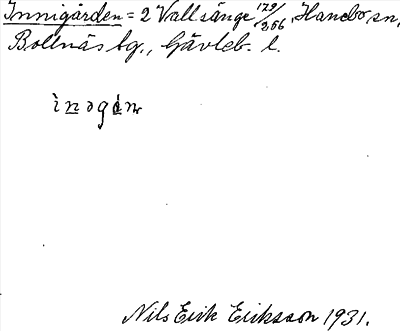 Innigården = 2 Vallsänge 179/256, Hanebo sn,
Bollnäs tg., Gävleb. l.
ìnəgǻn
Nils Erik Eriksson 1931.